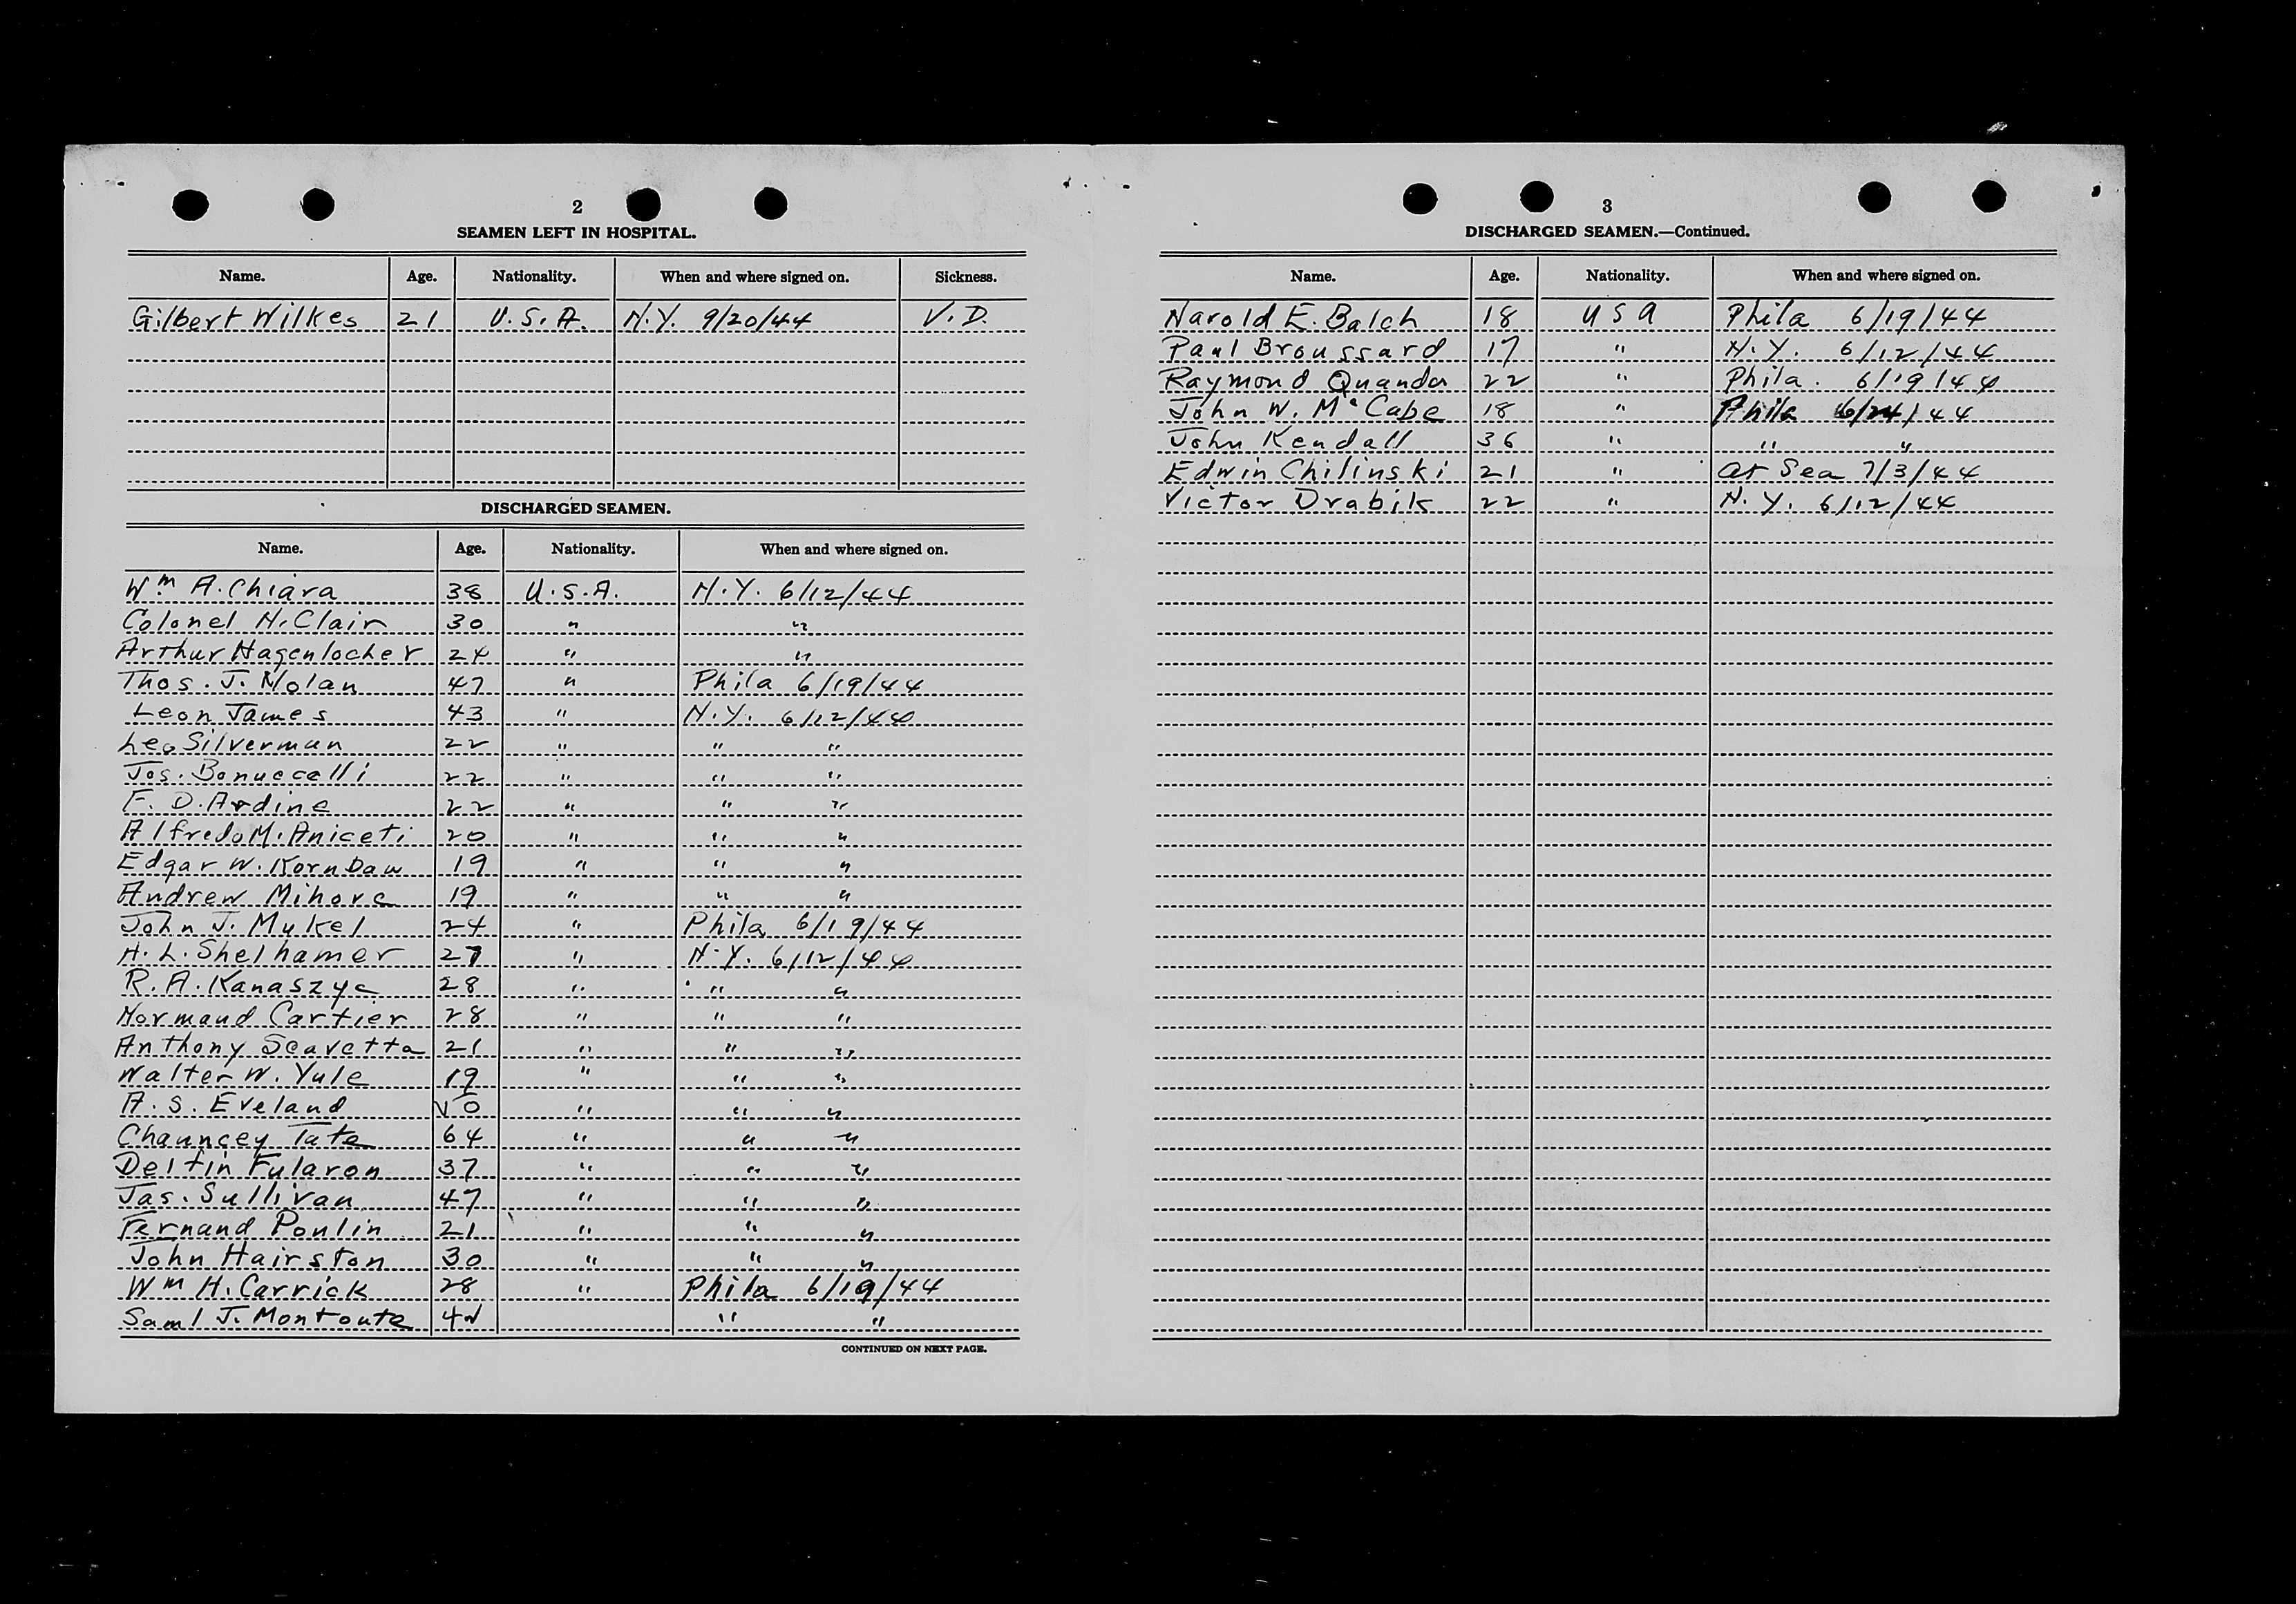 2
SEAMEN LEFT IN HOSPITAL.
Name. Age. Nationality. When and where signed on. Sickness.
Gilbert Wilkes 21 U.S.A. N.Y. 9/20/44 V.D.
DISCHARGED SEAMEN.
Name. Age. Nationality. When and where signed on.
Wm A. Chiara 38 U.S.A. N.Y. 6/12/44
Colonel H. Clair 30 " "
Arthur Hagenlocher 24 " "
Thos. J. Nolan 47 " Phila 6/19/44
Leon James 43 " N.Y. 6/12/44
Leo Silverman 22 " " "
Jos. Bonuccelli 22 " " "
F. D. Ardine 22 " " "
Alfredo M. Aniceti 20 " " "
Edgar W. Korndaw 19 " " "
Andrew Mihovc 19 " " "
John J. Mukel 24 " Phila 6/19/44
H. L. Shelhamer 27 " N.Y. 6/12/44
R. A. Kanaszyc 28 " " "
Normand Cartier 28 " " "
Anthony Scavetta 21 " " "
Walter W. Yule 19 " " "
A. S. Eveland 20 " " "
Chauncey Tate 64 " " "
Delfin Fularon 37 " " "
Jas. Sullivan 47 " " "
Fernand Poulin 21 " " "
John Hairston 30 " " "
Wm H. Carrick 28 " Phila 6/19/44
Saml J. Montoute 42 " "
CONTINUED ON NEXT PAGE.
3
DISCHARGED SEAMEN.—Continued.
Name. Age. Nationality. When and where signed on.
Harold E. Balch 18 USA Phila 6/19/44
Paul Broussard 17 " N.Y. 6/12/44
Raymond Quander 22 " Phila. 6/19/44
John W. McCabe 18 " Phila 6/24/44
John Kendall 36 " " "
Edwin Chilinski 21 " at Sea 7/3/44
Victor Drabik 22 " N.Y. 6/12/44